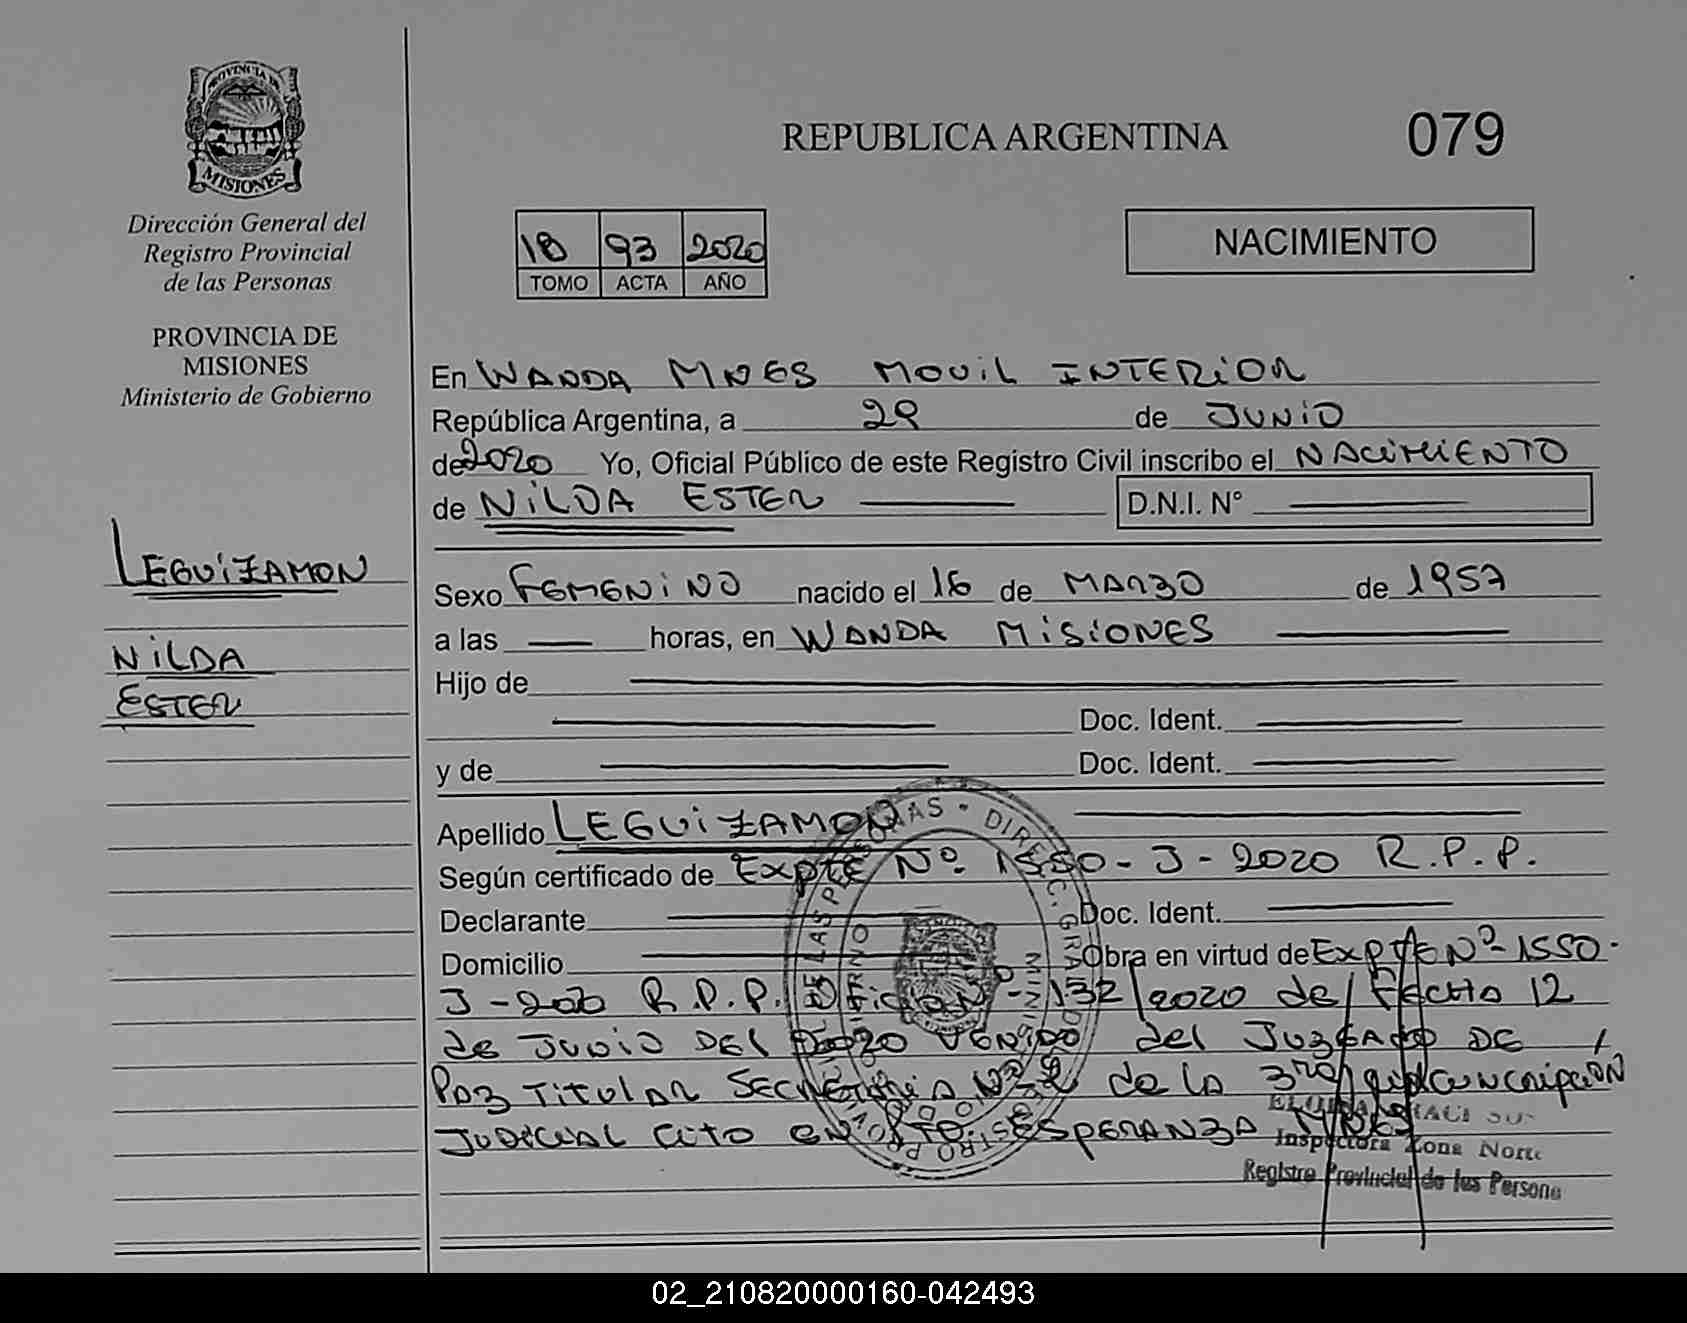 PROVINCIA DE
MISIONES
Dirección General del
Registro Provincial
de las Personas
PROVINCIA DE
MISIONES
Ministerio de Gobierno
LEGUIZAMON
NILDA
ESTER
REPUBLICA ARGENTINA
079
1B 93 2020
TOMO ACTA AÑO
NACIMIENTO
En WANDA MNES MOVIL INTERIOR
República Argentina, a 29 de JUNIO
de 2020 Yo, Oficial Público de este Registro Civil inscribo el NACIMIENTO
de NILDA ESTER D.N.I. N°
Sexo FEMENINO nacido el 16 de MARZO de 1957
a las horas, en WANDA MISIONES
Hijo de
Doc. Ident.
y de Doc. Ident.
Apellido LEGUIZAMON
Según certificado de Expte Nº 1550 - J - 2020 R.P.P.
Declarante Doc. Ident.
Domicilio Obra en virtud de Expte Nº 1550-
J - 2020 R.P.P. Oficio Nº 132/2020 de Fecha 12
de JUNIO DEL 2020 VENIDO del JUZGADO DE
PAZ TITULAR SECRETARIA Nº 2 de la 3ra circunscripción
JUDICIAL cito en PTO. ESPERANZA MNES
Inspectora Zona Norte
Registro Provincial de las Persona
02_210820000160-042493